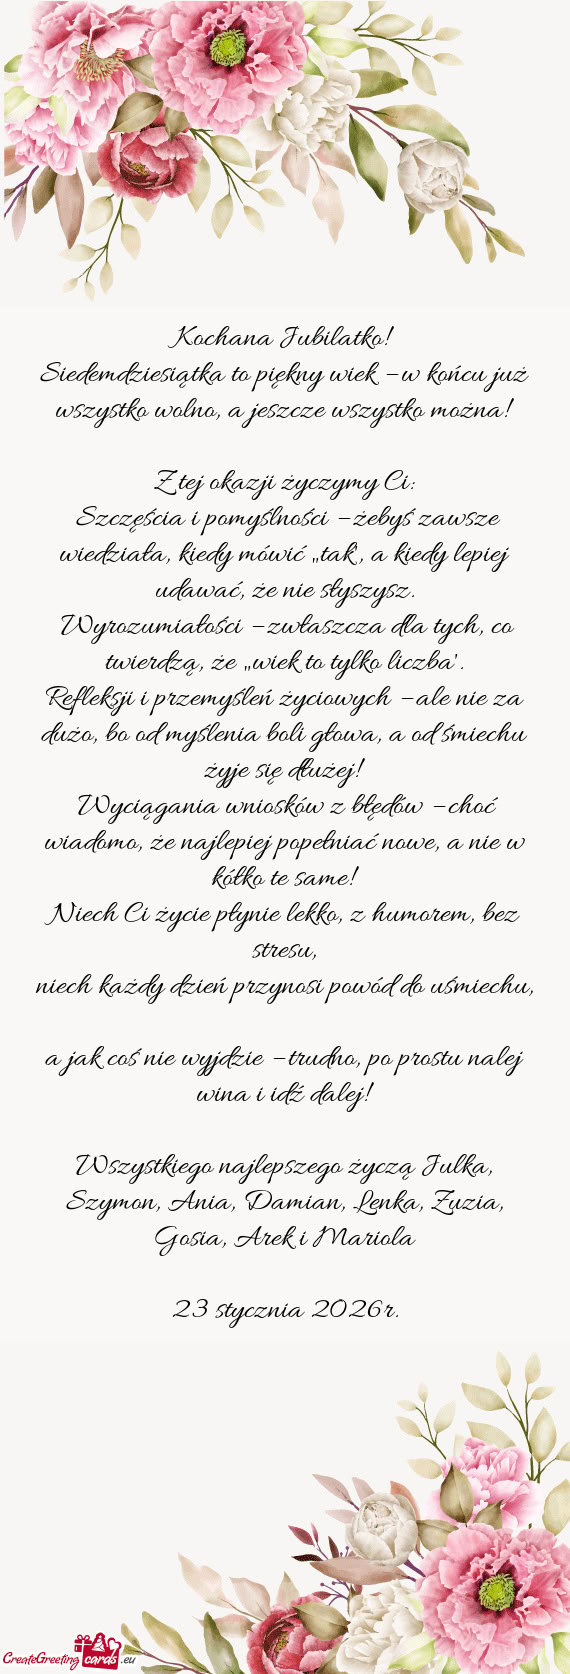 Kochana Jubilatko!
Siedemdziesiątka to piękny wiek – w końcu już
wszystko wolno, a jeszcze wszystko można!
Z tej okazji życzymy Ci:
Szczęścia i pomyślności – żebyś zawsze
wiedziała, kiedy mówić „tak”, a kiedy lepiej
udawać, że nie słyszysz.
Wyrozumiałości – zwłaszcza dla tych, co
twierdzą, że „wiek to tylko liczba”.
Refleksji i przemyśleń życiowych – ale nie za
dużo, bo od myślenia boli głowa, a od śmiechu
żyje się dłużej!
Wyciągania wniosków z błędów – choć
wiadomo, że najlepiej popełniać nowe, a nie w
kółko te same!
Niech Ci życie płynie lekko, z humorem, bez
stresu,
niech każdy dzień przynosi powód do uśmiechu,
a jak coś nie wyjdzie – trudno, po prostu nalej
wina i idź dalej!
Wszystkiego najlepszego życzą Julka,
Szymon, Ania, Damian, Lenka, Zuzia,
Gosia, Arek i Mariola
23 stycznia 2026r.
CreateGreeting cards .eu